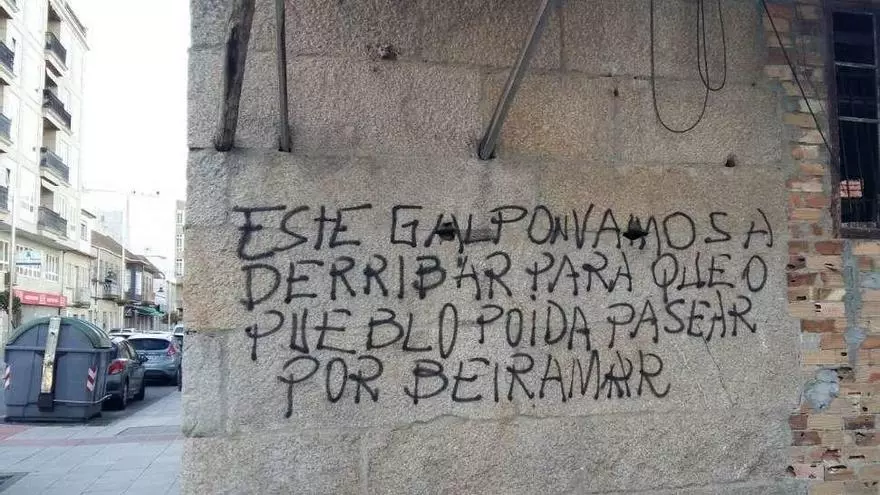 ESTE GALPON VAMOS A
DERRIBAR PARA QUE O
PUEBLO POIDA PASEAR
POR BEIRAMAR